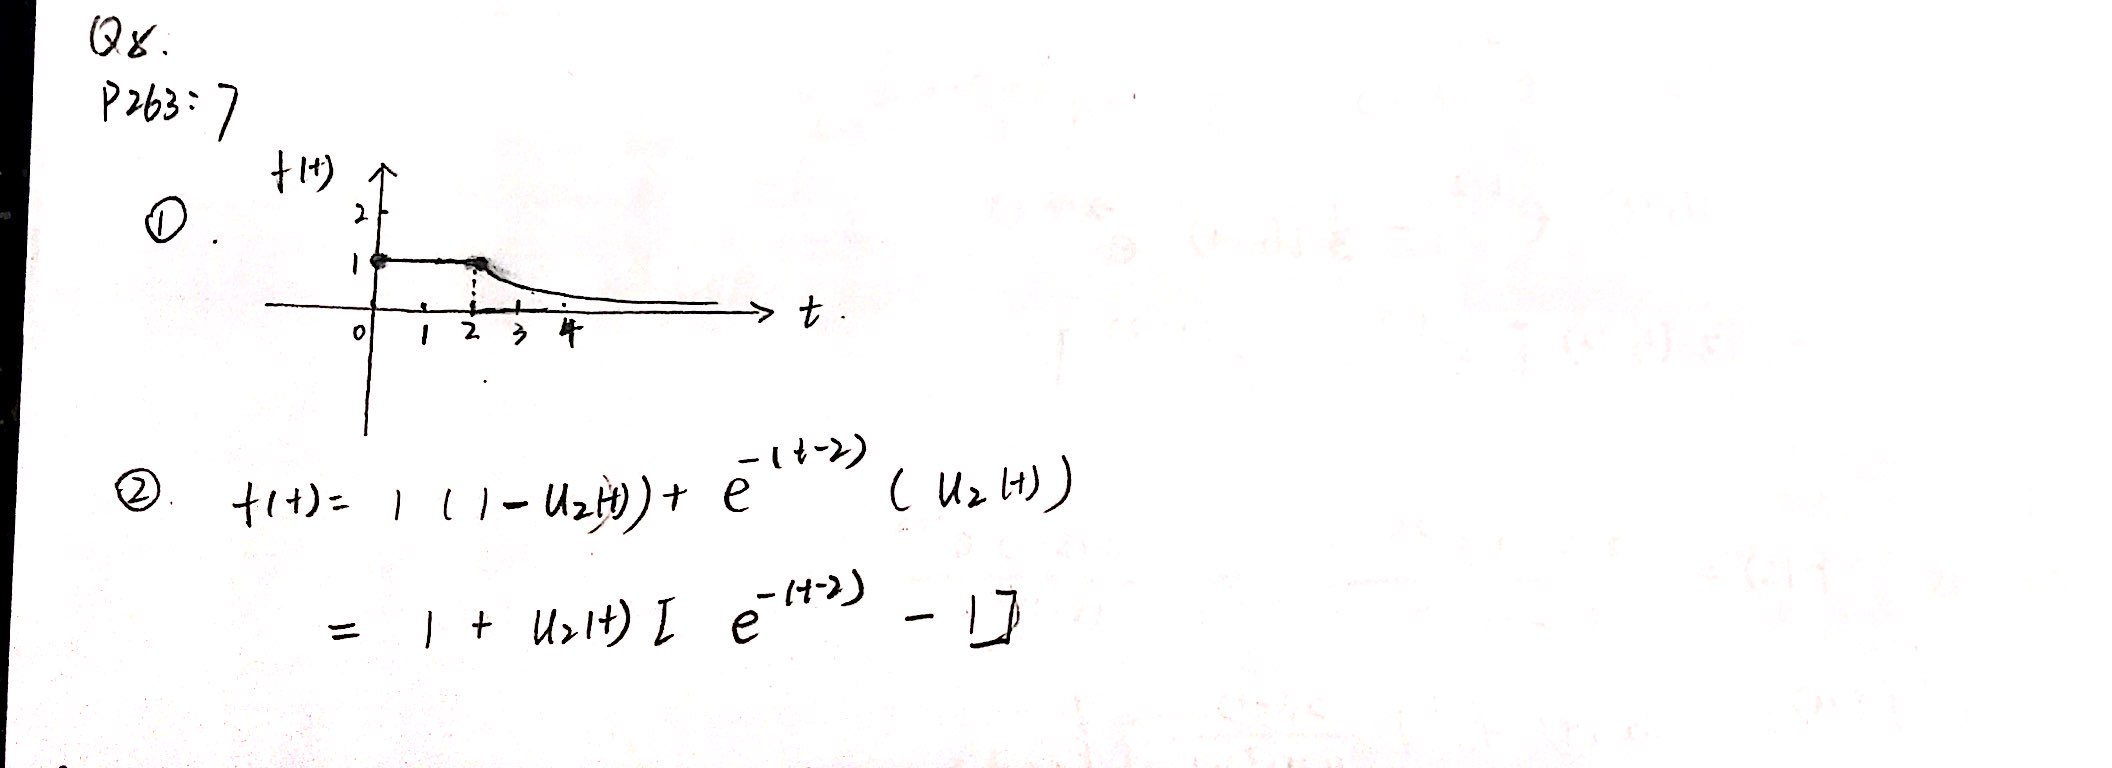 Q8.
P263: 7
①.
f(t)
2
1
0 1 2 3 4
t.
②. f(t) = 1 (1 - u₂(t)) + e^{-(t-2)} (u₂(t))
= 1 + u₂(t) [ e^{-(t-2)} - 1 ]